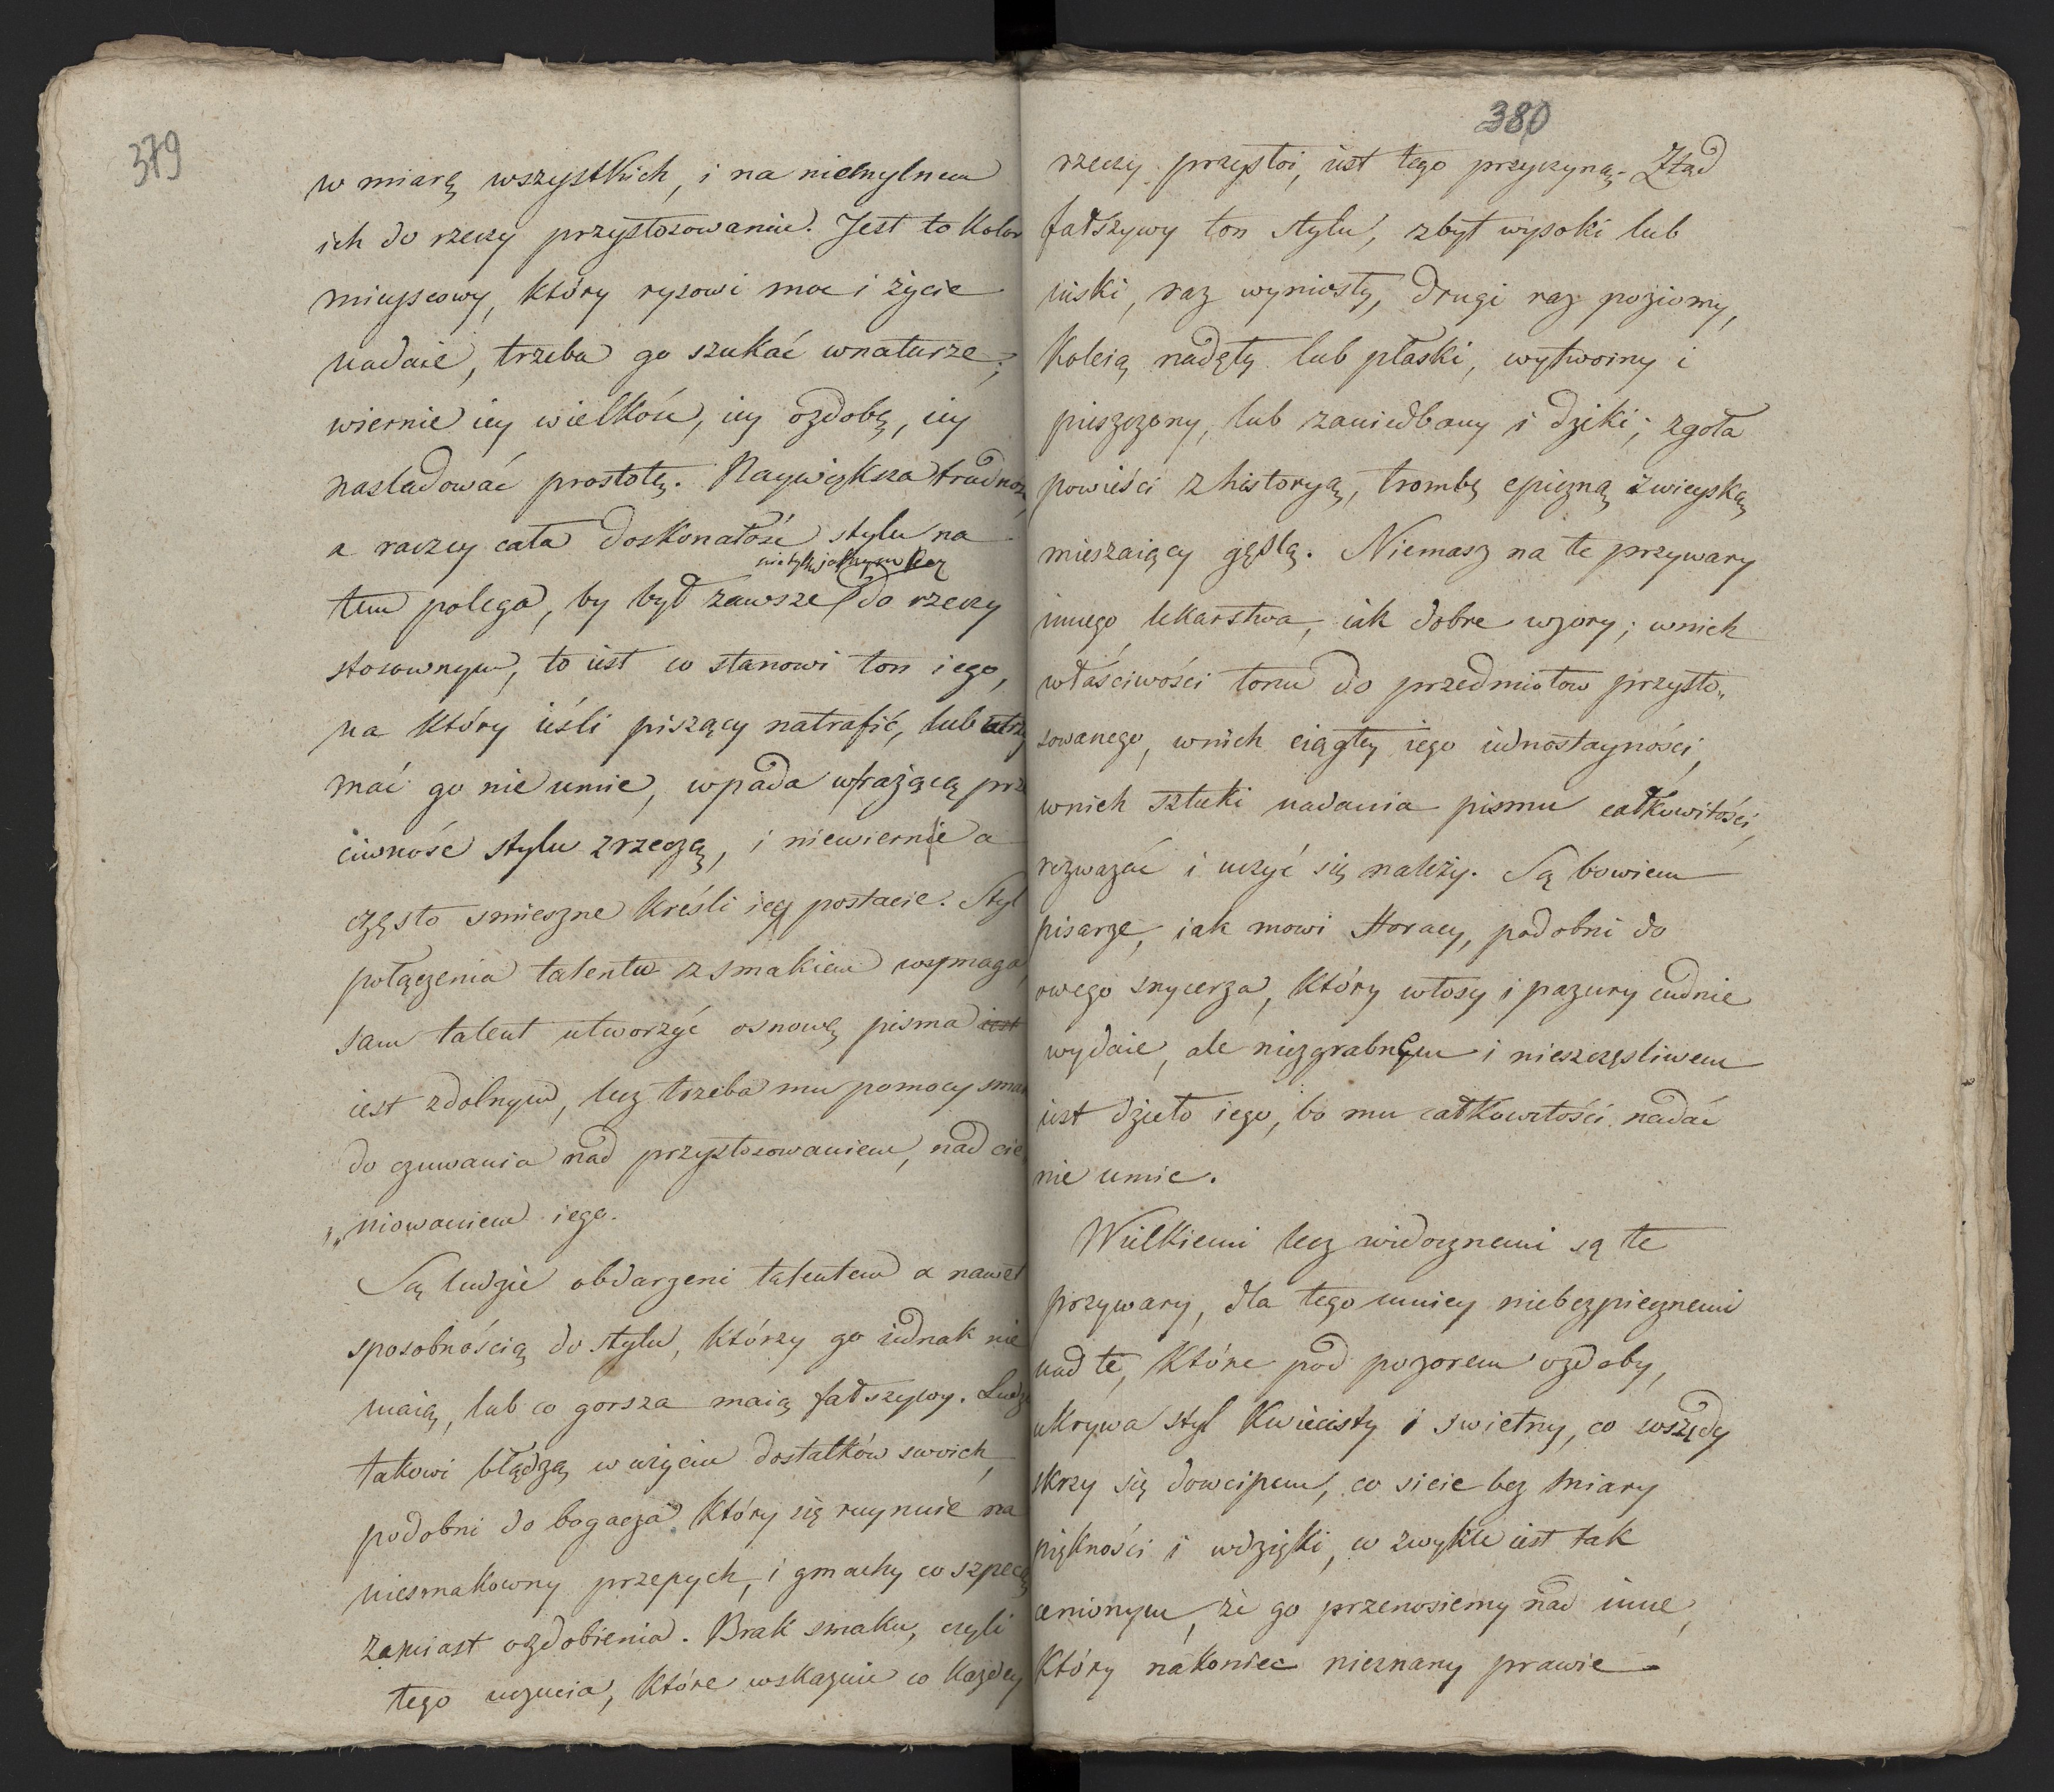 379
w miarę wszystkich, i na niemylnem
ich do rzeczy przystosowaniu. Jest to kolor
mieyscowy, który rysowi moc i życie
nadaie, trzeba go szukać wnaturze;
wiernie iey wielkość, iey ozdobę, iey
nasladować prostotę. Naywiększa trudność
a raczey cała doskonałość stylu na
tem polega, by był zawsze do rzeczy
stosownym, to iest co stanowi ton iego,
na który ieśli piszący natrafić, lub utrzy
mać go nie umie, wpada wrażącą prze
ciwność stylu zrzeczą, i niewierne a
często smieszne kreśli iey postacie. Styl
połączenia talentu z smakiem wymaga,
sam talent utworzyć osnowę pisma iest
iest zdolnym, lecz trzeba mu pomocy smaku
do czuwania nad przystosowaniem, nad cie
„niowaniem iego.
Są ludzie obdarzeni talentem a nawet
sposobnością do stylu, którzy go iednak nie
maią, lub co gorsza maią fałszywy. Ludzie
takowi błądzą w użyciu dostatków swoich,
podobni do bogacza który się ruynuie na
niesmakowny przepych, i gmachy co szpecą
zamiast ozdobienia. Brak smaku, czyli
tego uczucia, które wskazuie co każdey
380
rzeczy przystoi, iest tego przyczyną. Ztąd
fałszywy ton stylu, zbyt wysoki lub
niski, raz wyniosły, drugi raz poziomy,
koleią nadęty lub płaski, wytworny i
pieszczony, lub zaniedbany i dziki; zgoła
powieści z historyą, trombę epiczną z wieyską
mieszaiący gęślą. Niemasz na te przywary
innego lekarstwa, iak dobre wzory; wnich
właściwości tonu do przedmiotow przysto„
sowanego, wnich ciągłey iego iednostayności,
wnich sztuki nadania pismu całkowitości,
rozważać i uczyć się należy. Są bowiem
pisarze, iak mowi Horacy, podobni do
owego snycerza, który włosy i pazury cudnie
wydaie, ale niezgrabnem i nieszczęsliwem
iest dzieło iego, bo mu całkowitości nadać
nie umie.
Wielkiemi lecz widocznemi są te
przywary, dla tego mniey niebezpiecznemi
nad te, które pod pozorem ozdoby,
ukrywa styl kwiecisty i swietny, co wszędy
skrzy się dowcipem, co sieie bez miary
piękności i wdzięki, co zwykle iest tak
cenionym, że go przenosiemy nad inne,
który nakoniec nieznany prawie